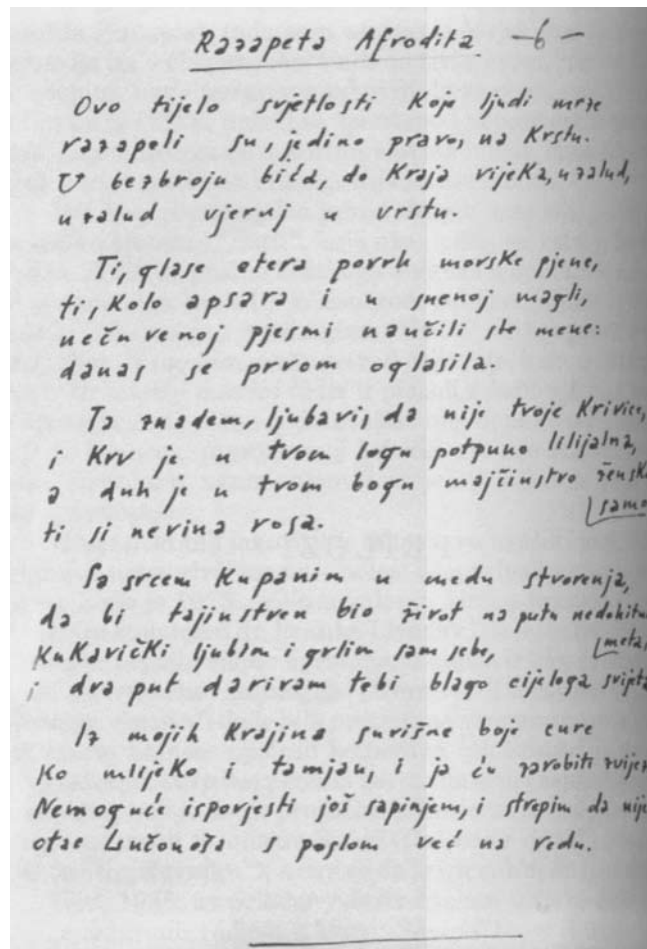 Razapeta Afrodita —6—
Ovo tijelo svjetlosti koje ljudi mrze
razapeli su, jedino pravo, na Krstu.
U bezbroju bića, do Kraja vijeka, uzalud,
uzalud vjeruj u vrstu.
Ti, glase etera povrh morske pjene,
ti, Kolo apsara i u snenoj magli,
nečuvenoj pjesmi naučili ste mene:
danas se prvom oglasila.
Ta znadem, ljubavi, da nije tvoje Krivice,
i Krv je u tvom logu potpuno lilijalna,
a duh je u tvom bogu majčinstvo žensko
samo
ti si nevina rosa.
Sa srcem Kupanim u medu stvorenja,
da bi tajinstven bio život na putu nedohitu
meta,
Kukavički ljubim i grlim sam sebe,
i dva put darivam tebi blago cijeloga svijeta
Iz mojih Krajina suvišne boje cure
Ko mlijeko i tamjan, i ja ću zarobiti zvijer
Nemoguće ispovjesti još sapinjem, i strepim da nije
otac s poslom već na redu.